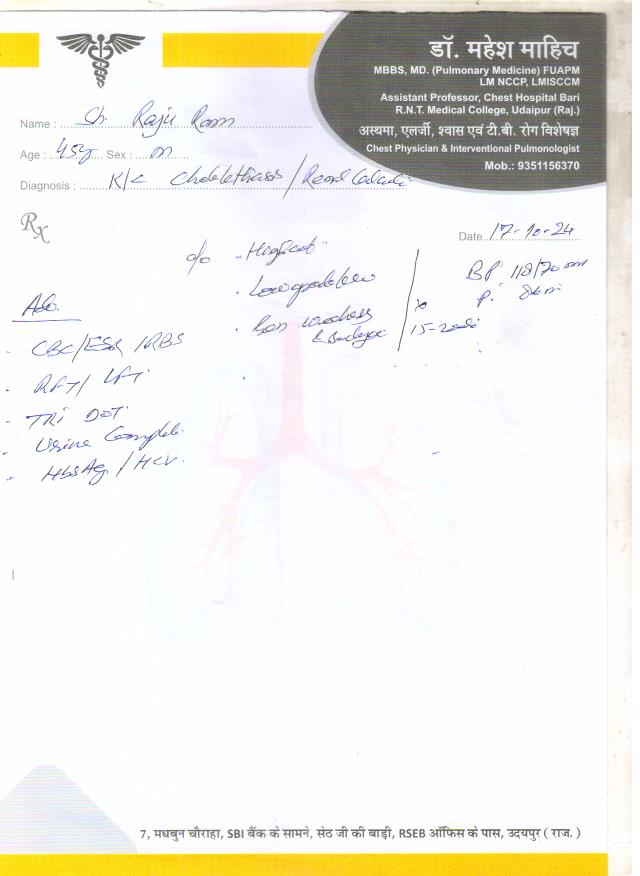 डॉ. महेश माहिच
MBBS, MD. (Pulmonary Medicine) FUAPM
LM NCCP, LMISCCM
Assistant Professor, Chest Hospital Bari
R.N.T. Medical College, Udaipur (Raj.)
अस्थमा, एलर्जी, श्वास एवं टी.बी. रोग विशेषज्ञ
Chest Physician & Interventional Pulmonologist
Mob.: 9351156370
Name : Sh. Raju Ram
Age : 45y Sex : m
Diagnosis : K/C / Renal
Rx
Date. 17-10-24
c/o
BP 118/70 mm
P.
Adv.
- CBC/ESR/RBS
- RFT/LFT.
- TRI DOT.
- Urine Complete
- HbsAg/HCV.
7, मधबुन चौराहा, SBI बैंक के सामने, सेठ जी की बाड़ी, RSEB ऑफिस के पास, उदयपुर ( राज. )